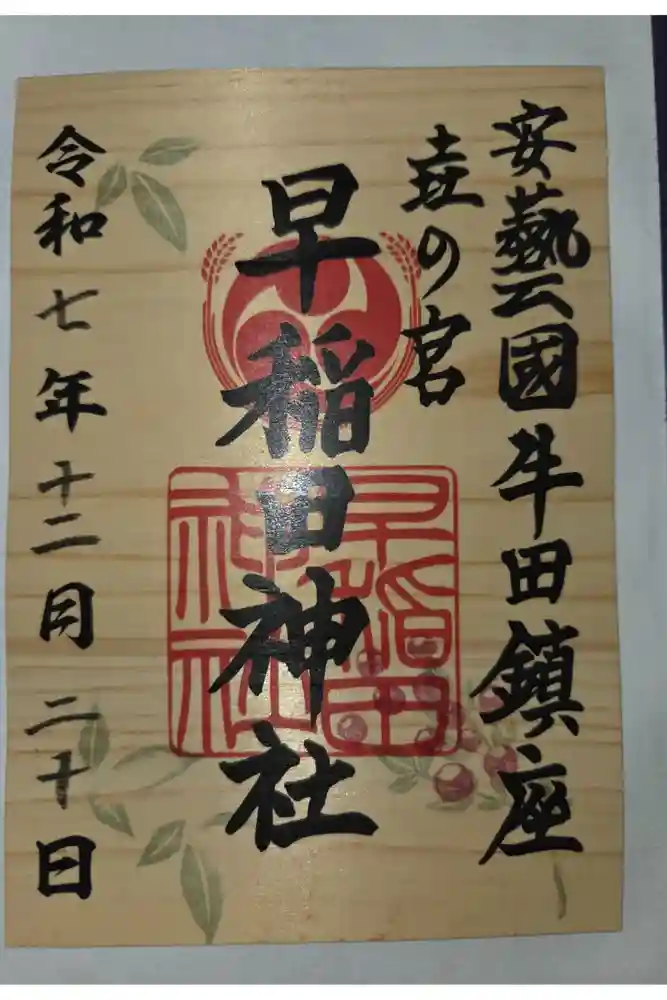 安藝國牛田鎮座
壷の宮
早稲田神社
早稲田
神社
令和七年十二月二十日